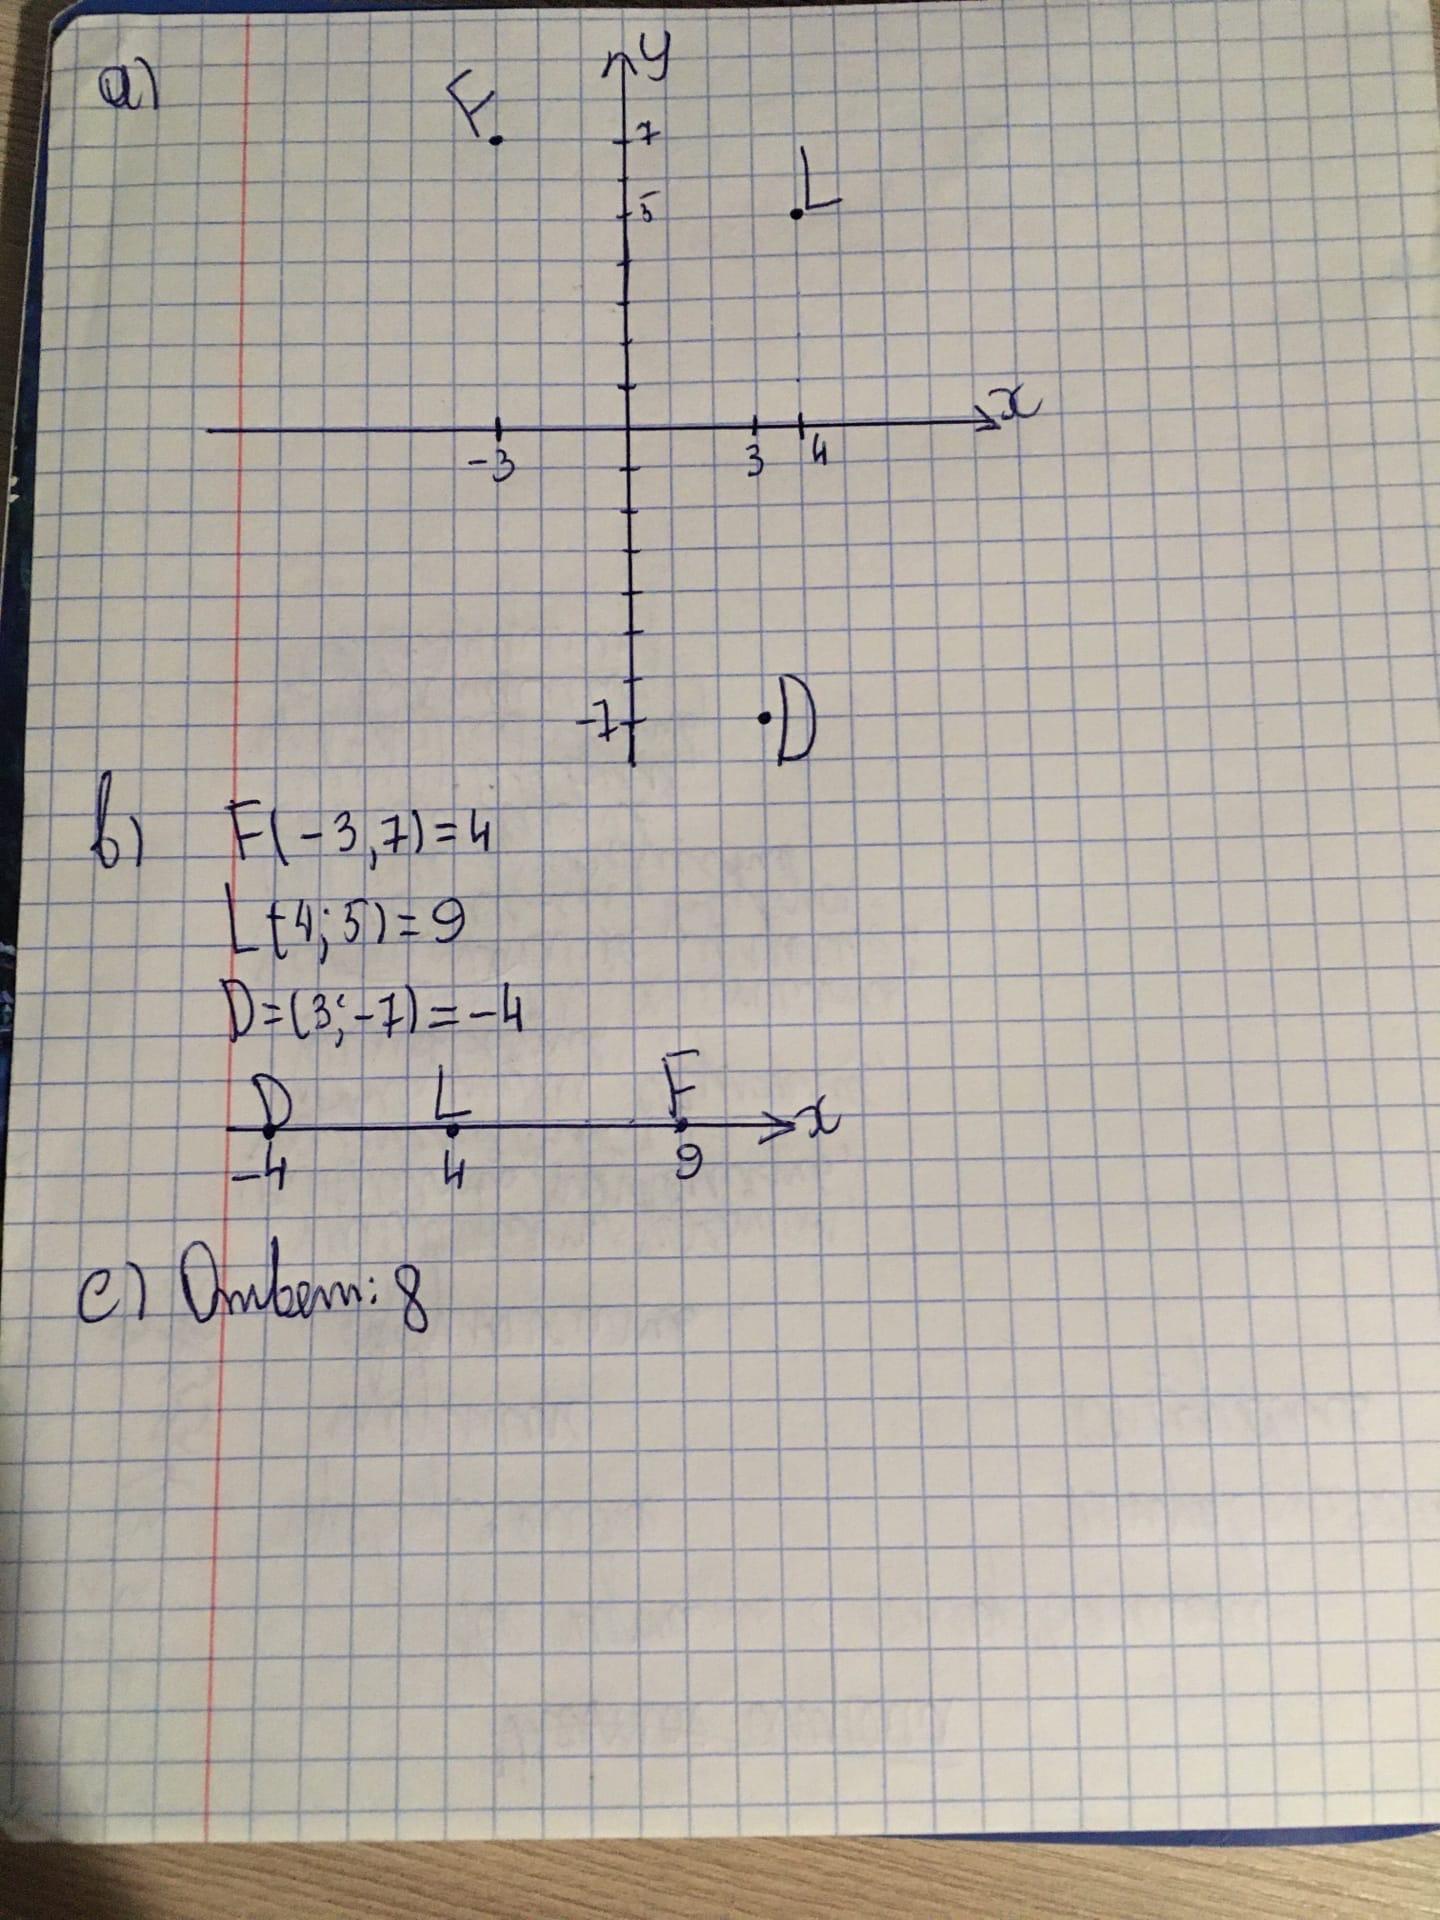 a)
y
F
7
L
5
x
-3 3 4
-7 D
b) F(-3,7)=4
L(4;5)=9
D=(3;-7)=-4
D L F
x
-4 4 9
c) Ответ: 8